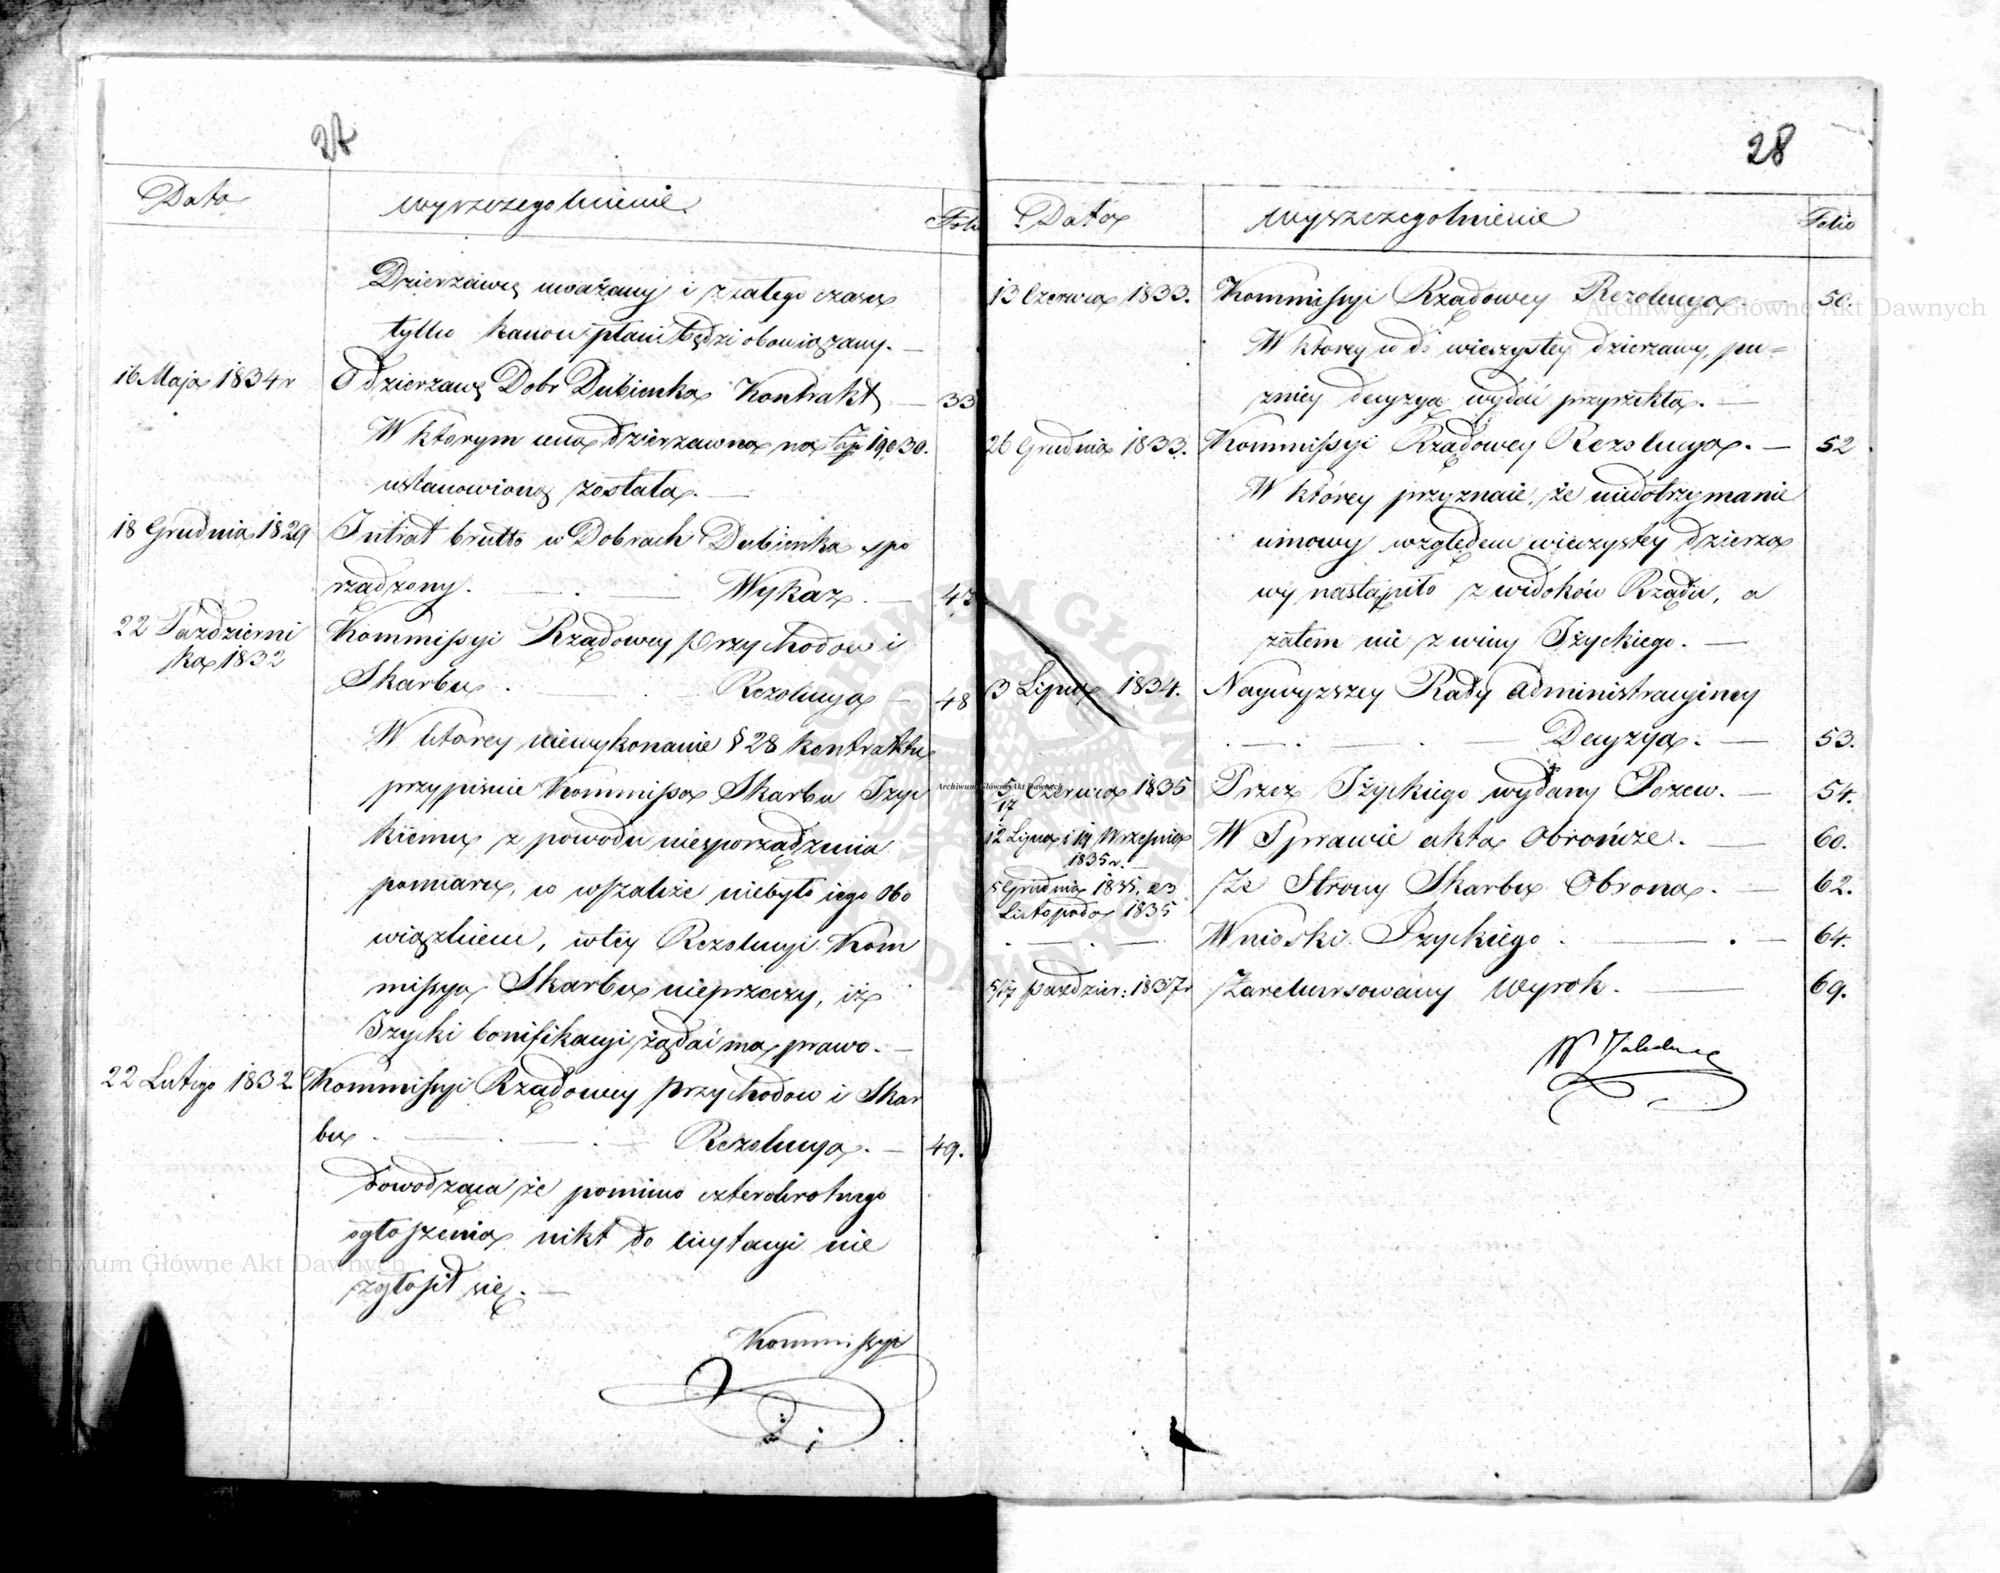 27
Data
wyszczegolnienie
Folio
Dzierzawcę uważany i z całego czasu
tylko kanon płacić będzie obowiązany. —
16 Maja 1834 r
O dzierzawę Dobr Dubienka Kontrakt — 33
W ktorym cena dzierzawna na 190 30.
ustanowioną została. —
18 Grudnia 1829
Intrat brutto w Dobrach Dubienka spo
rządzony. — . — Wykaz. — 47
22 Pazdzierni
ka 1832
Kommissyi Rządowey Przychodow i
Skarbu . — . Rezolucya — 48
W ktorey niewykonanie § 28 kontraktu
przypisuie Kommissa Skarbu Iżyc
kiemu z powodu niesporządzenia
pomiaru, co wszakże niebyło iego Obo
wiązkiem, w tey Rezolucyi Kom
missya Skarbu nieprzeczy, iż
Iżycki bonifikacyi żądać ma prawo. —
22 Lutego 1832
Kommissyi Rządowey przychodow i Skar
bu . — . — Rezolucya. — 49.
dowodząca że pomimo czterokrotnego
ogłoszenia nikt do licytacyi nie
zgłosił się. —
Kommissyi
28
Data
wyszczegolnienie
Folio
13 Czerwca 1833.
Kommissyi Rządowey Rezolucya — 50.
W ktorey co do wieczystey dzierzawy, pu=
zniey decyzyą wydać przyrzekła. —
26 Grudnia 1833.
Kommissyi Rządowey Rezolucya. — 52.
W którey przyznaie, że niedotrzymanie
umowy względem wieczystey dzierza
wy nastąpiło z widoków Rządu, a
zatem nie z winy Iżyckiego. —
3 Lipca 1834.
Naywyzszey Rady Administracyiney
. — . — . — Decyzya. — 53.
5/17 Czerwca 1835
Przez Iżyckiego wydany Pozew. — 54.
12 Lipca i 19 Września
1835 r.
W Sprawie akta Obrończe. — 60.
5 Grudnia 1835. 23
Listopada 1835
Ze Strony Skarbu Obrona. — 62.
. — . —
Wnioski Iżyckiego . — . — 64.
5/17 Paździer: 1837 r
Zarekursowany Wyrok. — 69.
Archiwum Główne Akt Dawnych
Archiwum Główne Akt Dawnych
Archiwum Główne Akt Dawnych
ARCHIWUM GŁÓWNE AKT DAWNYCH